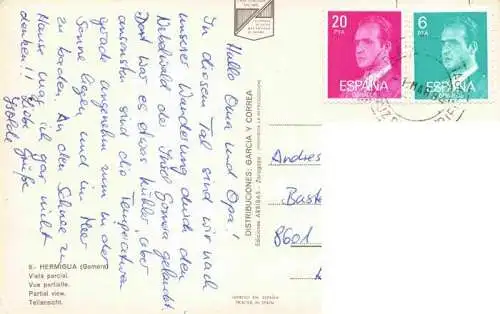 Hallo Oma und Opa!
In diesem Tal sind wir nach
unserer Wanderung durch den
Nebelwald der Insel Gomera gelandet.
Dort war es etwas kühler, aber
ansonsten sind die Temperaturen
gerade angenehm um in der
Sonne liegen und im Meer
zu baden. An den Schnee zu
Hause mag ich gar nicht
denken!! Liebe Grüße
Isolde
8.- HERMIGUA (Gomera)
Vista parcial.
Vue partielle.
Partial view.
Teilansicht.
DISTRIBUCIONES: GARCIA Y CORREA
Ediciones ARRIBAS - Zaragoza - PROHIBIDA LA REPRODUCCION
IMPRESO EN ESPAÑA
PRINTED IN SPAIN
20
PTA
ESPAÑA
CORREOS
6
PTA
ESPAÑA
CORREOS
Andres
Baste
8601